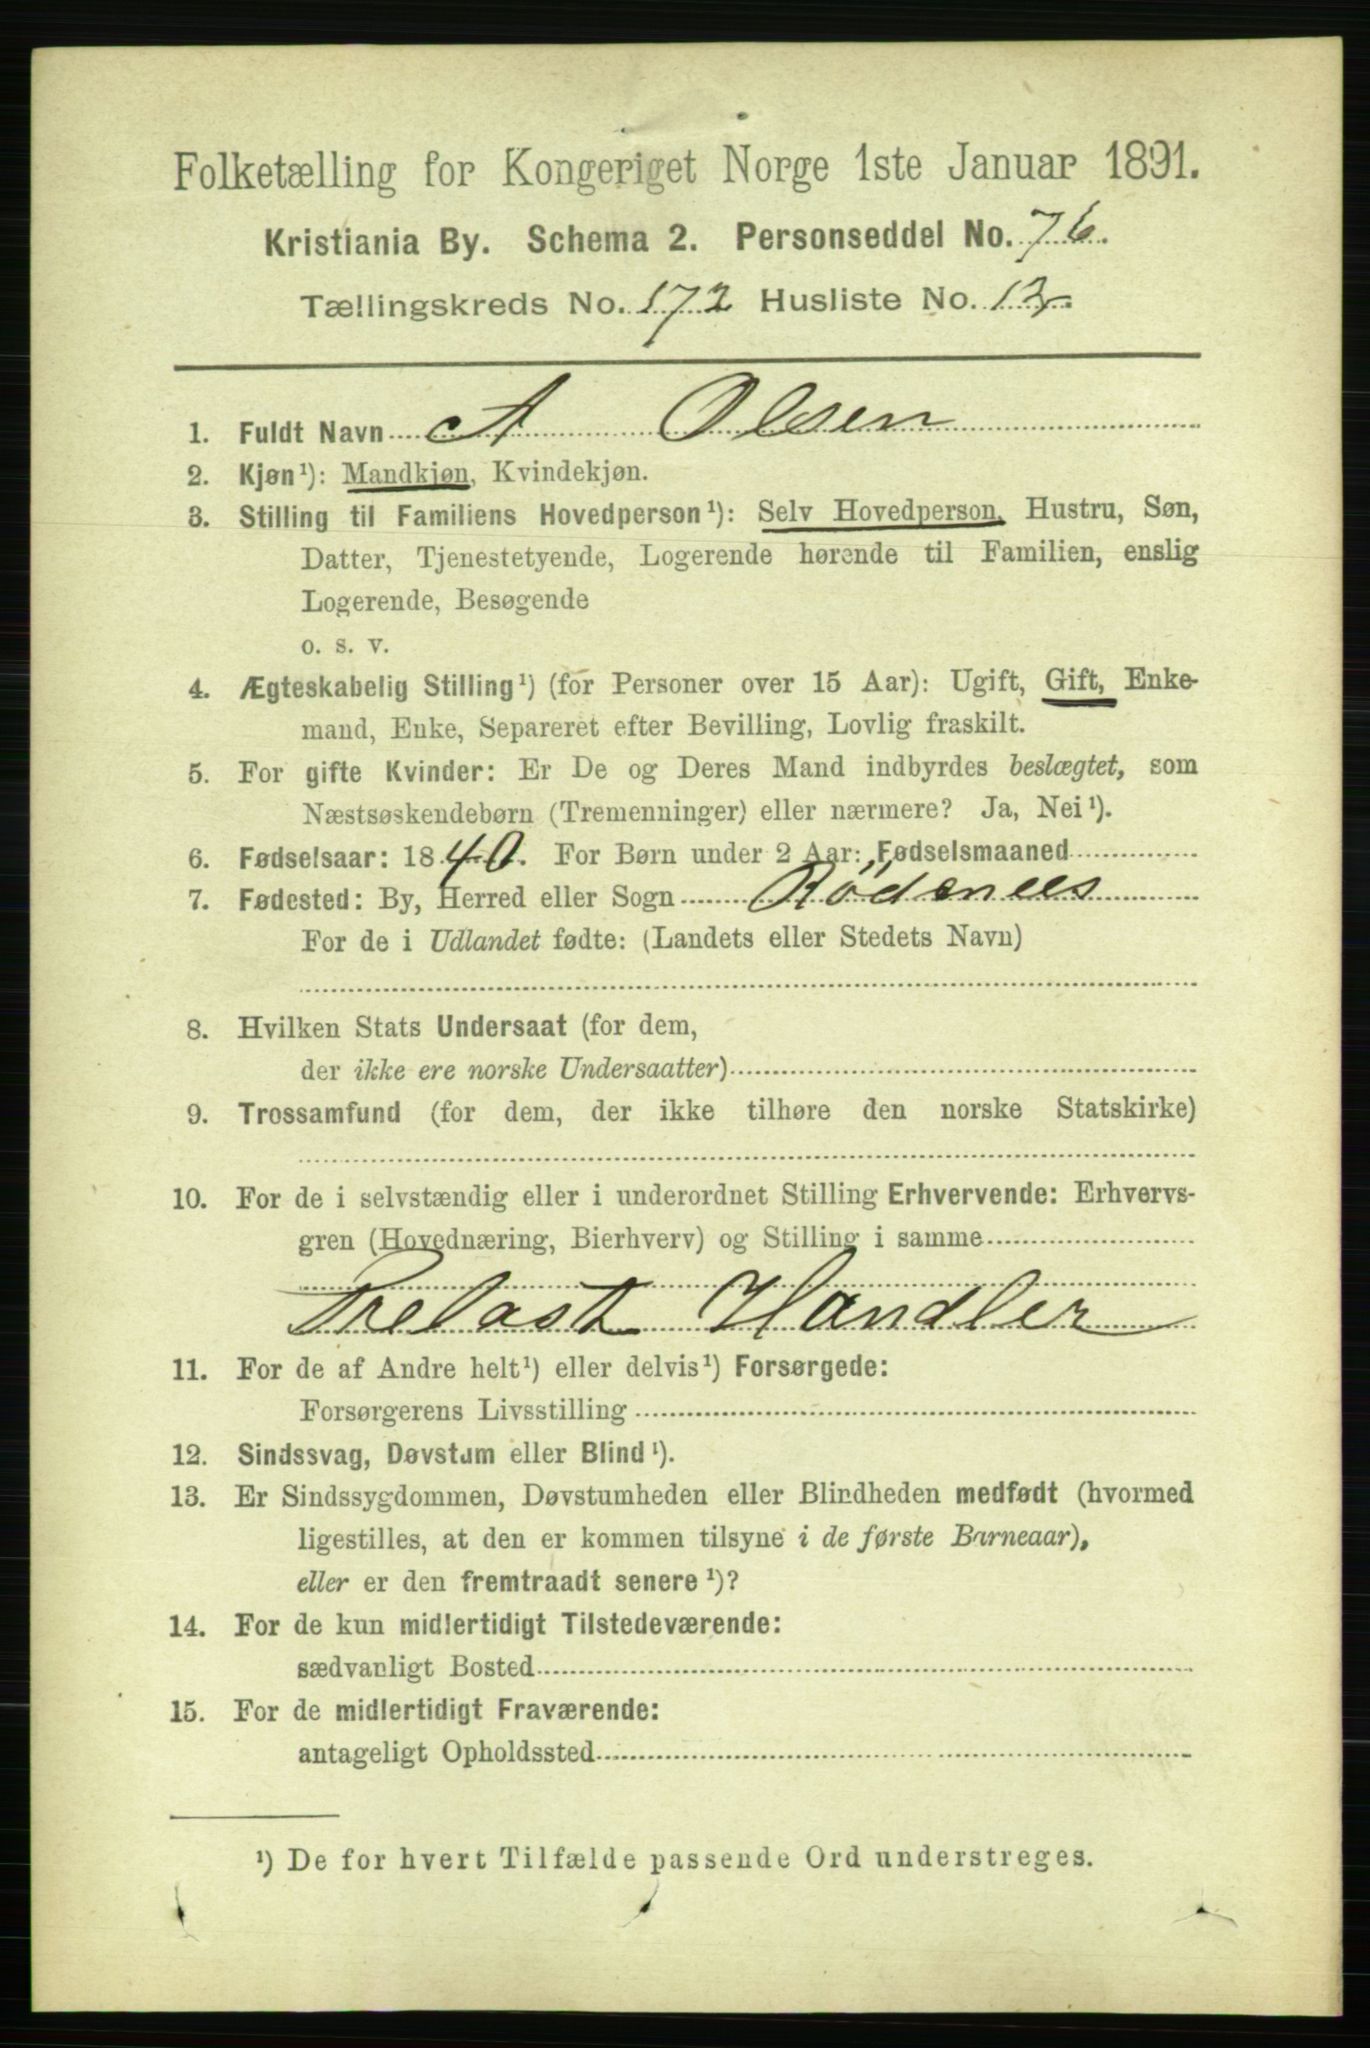 Folketælling for Kongeriget Norge 1ste Januar 1891.
Kristiania By. Schema 2. Personseddel No. 76.
Tællingskreds No. 172 Husliste No. 13.
1. Fuldt Navn A Olsen
2. Kjøn¹): Mandkjøn, Kvindekjøn.
3. Stilling til Familiens Hovedperson¹): Selv Hovedperson, Hustru, Søn,
Datter, Tjenestetyende, Logerende hørende til Familien, enslig
Logerende, Besøgende
o. s. v.
4. Ægteskabelig Stilling¹) (for Personer over 15 Aar): Ugift, Gift, Enke-
mand, Enke, Separeret efter Bevilling, Lovlig fraskilt.
5. For gifte Kvinder: Er De og Deres Mand indbyrdes beslægtet, som
Næstsøskendebørn (Tremenninger) eller nærmere? Ja, Nei¹).
6. Fødselsaar: 1840. For Børn under 2 Aar: Fødselsmaaned
7. Fødested: By, Herred eller Sogn Rödenees
For de i Udlandet fødte: (Landets eller Stedets Navn)
8. Hvilken Stats Undersaat (for dem,
der ikke ere norske Undersaatter)
9. Trossamfund (for dem, der ikke tilhøre den norske Statskirke)
10. For de i selvstændig eller i underordnet Stilling Erhvervende: Erhvervs-
gren (Hovednæring, Bierhverv) og Stilling i samme
Trelast Handler
11. For de af Andre helt¹) eller delvis¹) Forsørgede:
Forsørgerens Livsstilling
12. Sindssvag, Døvstum eller Blind¹).
13. Er Sindssygdommen, Døvstumheden eller Blindheden medfødt (hvormed
ligestilles, at den er kommen tilsyne i de første Barneaar),
eller er den fremtraadt senere¹)?
14. For de kun midlertidigt Tilstedeværende:
sædvanligt Bosted
15. For de midlertidigt Fraværende:
antageligt Opholdssted
¹) De for hvert Tilfælde passende Ord understreges.